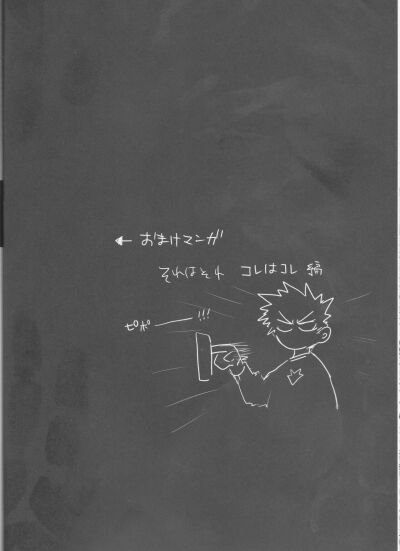 ← おまけマンガ
それはそれ コレはコレ 編
ピポ━━!!!